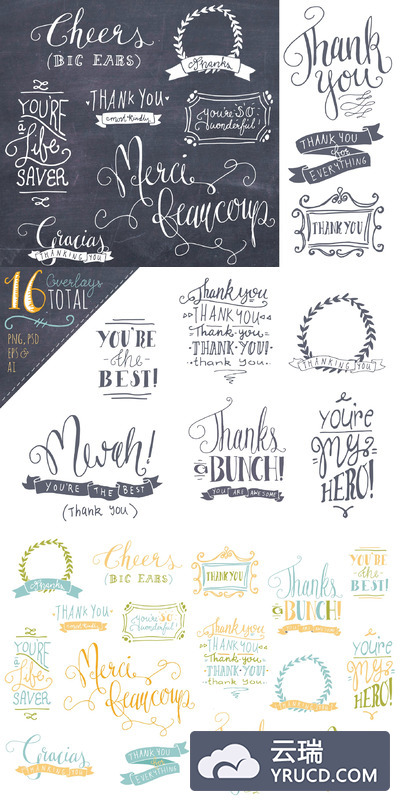 Cheers
(BIG EARS)
Thanks
YOU'RE
a Life
SAVER
THANK YOU
most kindly
you're SO
wonderful!
Merci
Beaucoup
Gracias
THANKING YOU
Thank
you
THANK YOU
for
EVERYTHING
THANKYOU!
16
Overlays
TOTAL
PNG, PSD
EPS &
AI
YOU'RE
the
BEST!
Thank you
THANK YOU
Thank you
THANK YOU!
thank you
THANK YOU!
THANKING YOU
Mwah!
YOU'RE THE BEST
(Thank you)
Thanks
a BUNCH!
YOU ARE AWESOME
you're
My
HERO!
Thanks
Cheers
(BIG EARS)
THANKYOU!
Thanks
a BUNCH!
YOU'RE
the
BEST!
THANK YOU
most kindly
you're SO
wonderful!
YOU'RE
a Life
SAVER
Merci
Beaucoup
Thank you
THANK YOU
Thank you
THANK YOU!
thank you
THANK YOU!
you're
My
HERO!
Gracias
THANKING YOU
THANK YOU
for
EVERYTHING
云瑞
YRUCD.COM